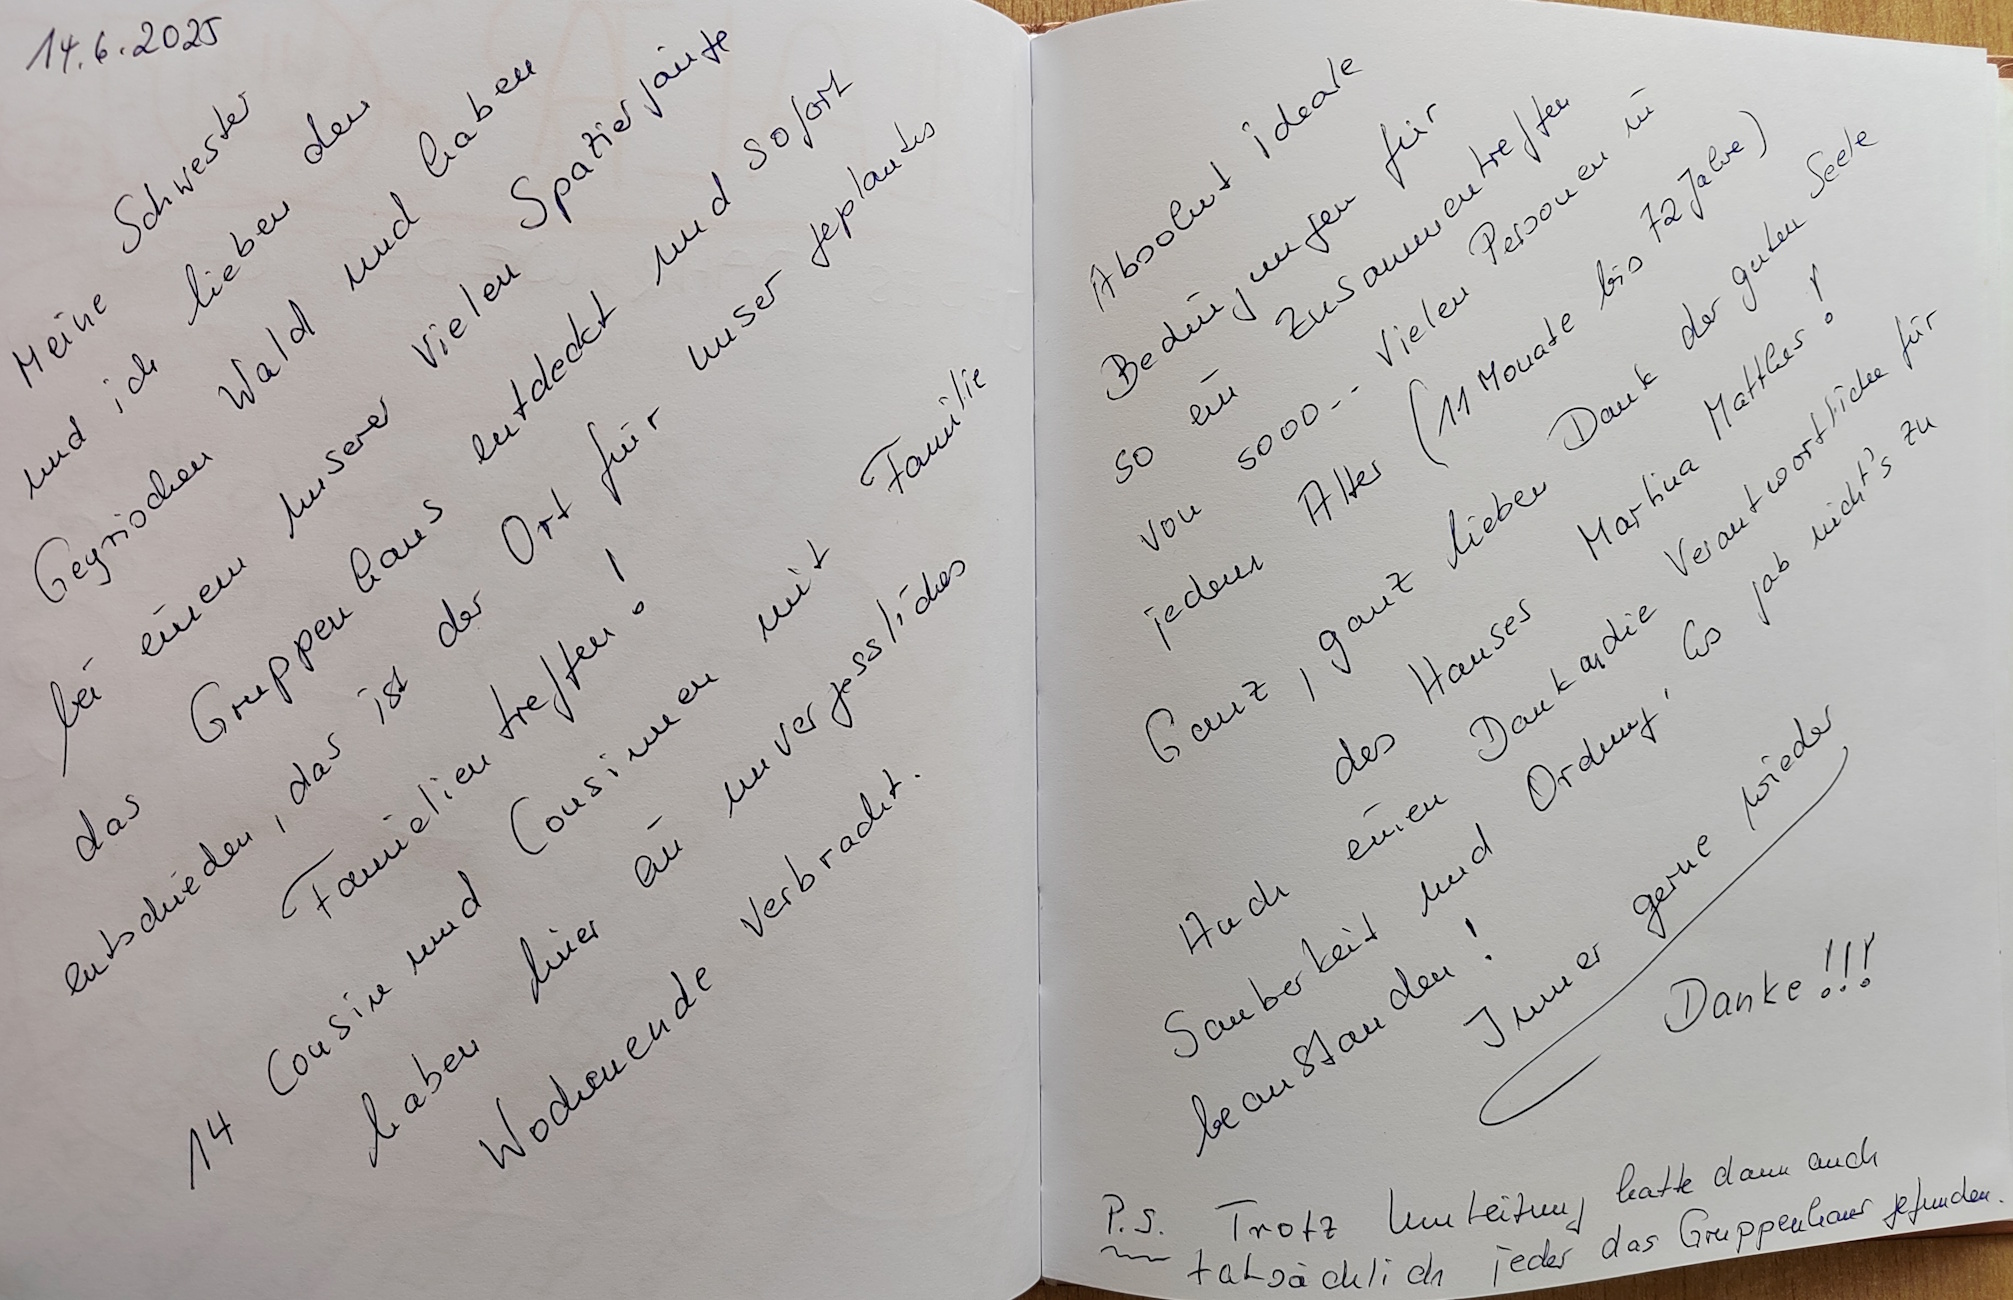 14.6.2025
Meine Schwester
und ich lieben den
Geyrischen Wald und haben
bei einem unserer vielen Spaziergänge
das Gruppenhaus entdeckt und sofort
entschieden, das ist der Ort für unser geplantes
Familientreffen!
14 Cousin und Cousinen mit Familie
haben hier ein unvergessliches
Wochenende verbracht.
Absolut ideale
Bedingungen für
so ein Zusammentreffen
von sooo-- vielen Personen in
jedem Alter (11 Monate bis 72 Jahre)
Ganz, ganz lieben Dank der guten Seele
des Hauses Martina Matthes!
Auch einen Dank an die Verantwortliche für
Sauberkeit und Ordnung! Es gab nicht's zu
beanstanden!
Immer gerne wieder
Danke!!!
P.S. Trotz Umleitung hatte dann auch
tatsächlich jeder das Gruppenhaus gefunden.